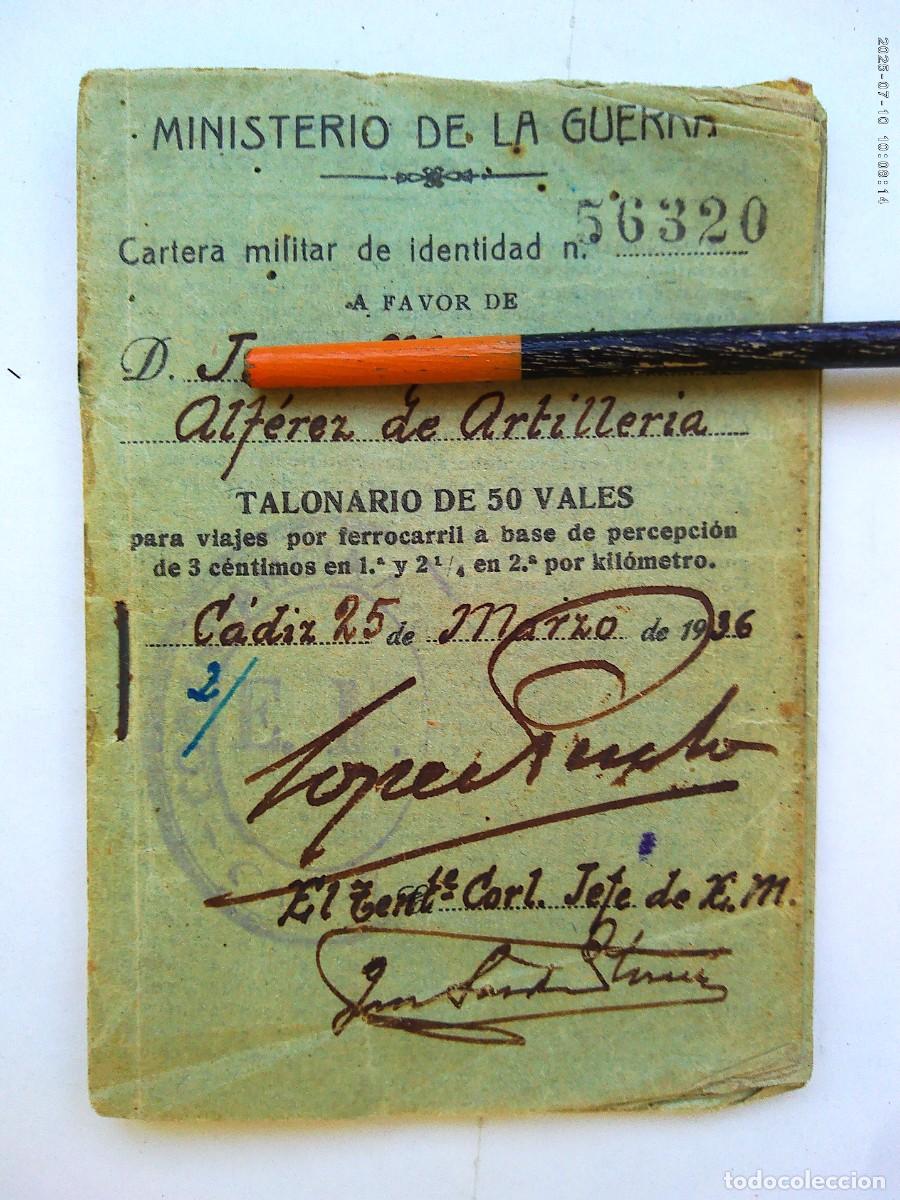 MINISTERIO DE LA GUERRA
Cartera militar de identidad n. 56320
A FAVOR DE
D. J
Alférez de Artilleria
TALONARIO DE 50 VALES
para viajes por ferrocarril a base de percepción
de 3 céntimos en 1.ª y 2 1/4 en 2.ª por kilómetro.
Cádiz 25 de Marzo de 1936
2/
E.
El Tente. Corl. Jefe de E.M.
2025-07-10 10:08:14
todocoleccion